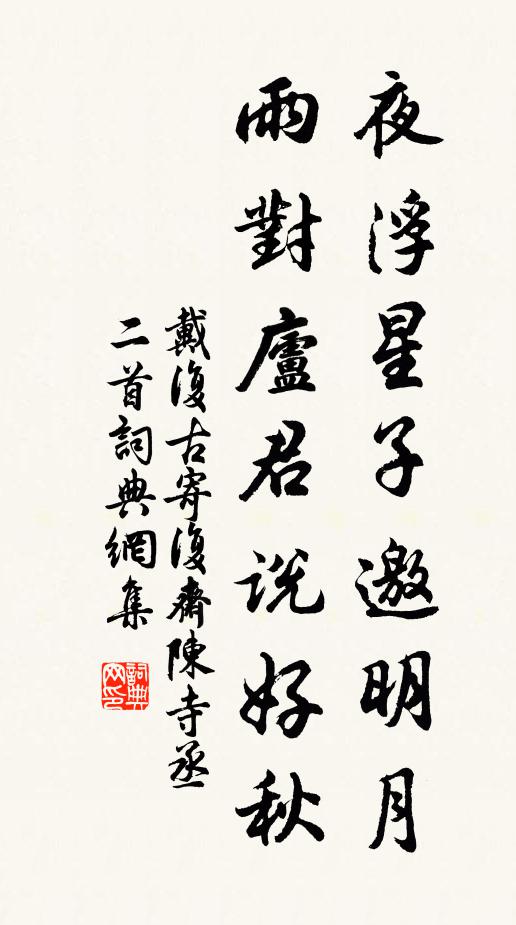 夜浮星子邀明月
雨對廬君説好秋
戴復古寄復齋陳寺丞
二首詞典網集
詞典
网印